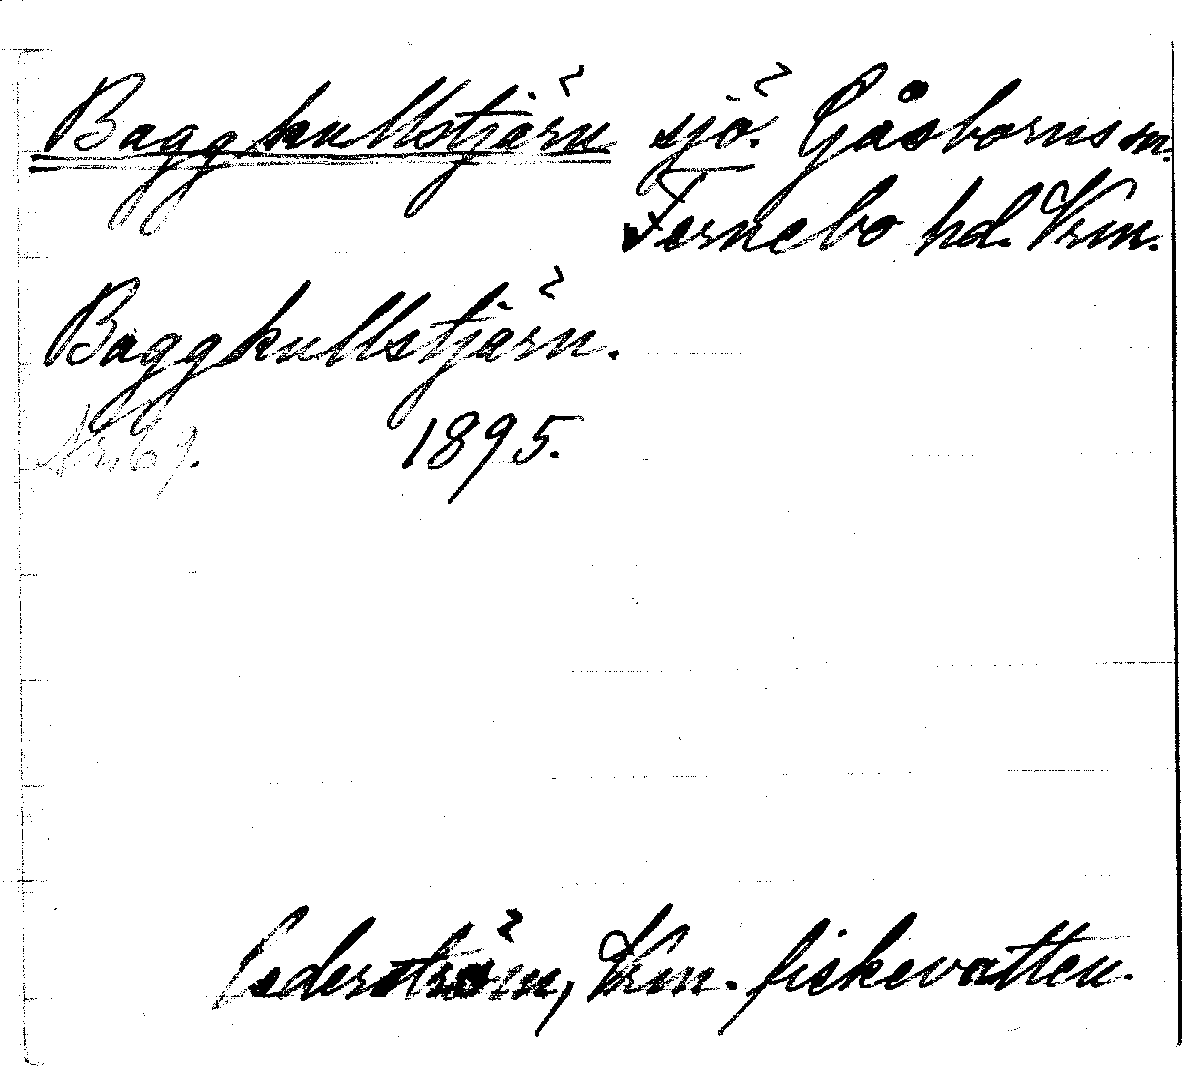 Baggkullstjärn sjö. Gåsborns sn.
Fernebo hd. Vrm.
Baggkullstjärn.
Nr 69. 1895.
Cederström, Vrm. fiskevatten.